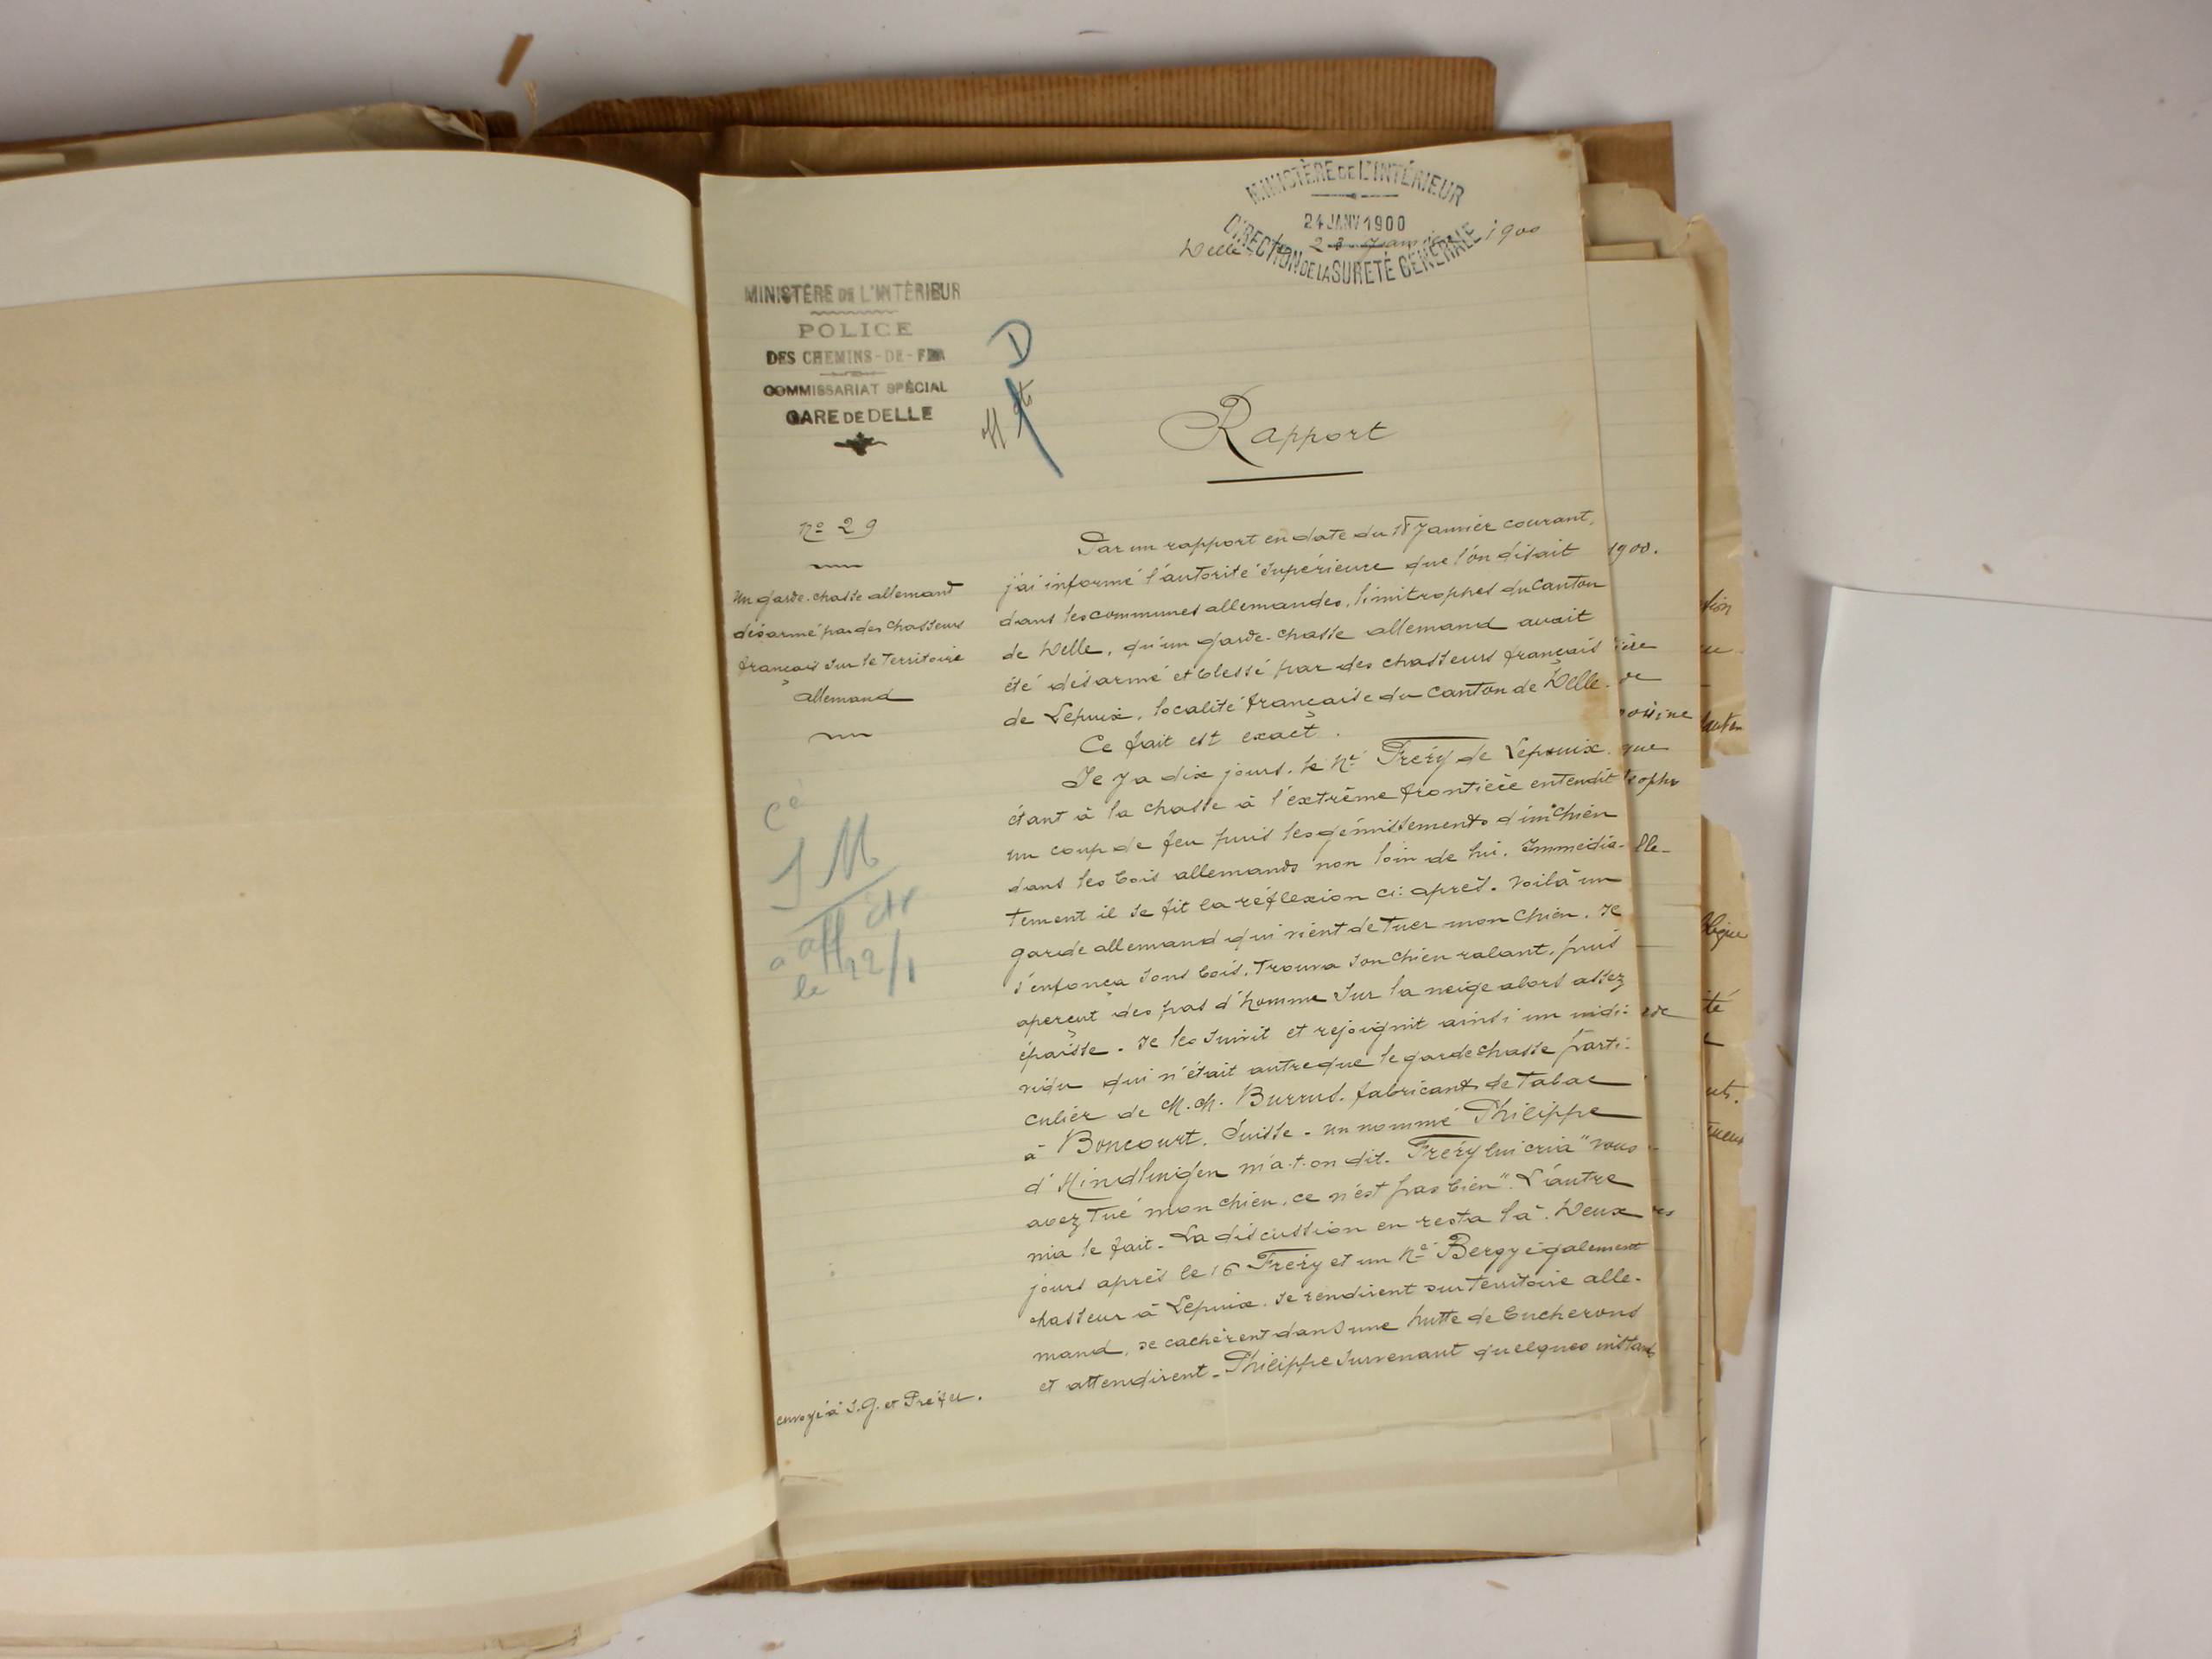 MINISTÈRE DE L'INTÉRIEUR
24 JANV 1900
DIRECTION DE LA SURETÉ GÉNÉRALE
Delle 23 Janvier 1900
MINISTÈRE DE L'INTÉRIEUR
POLICE
DES CHEMINS-DE-FER
COMMISSARIAT SPÉCIAL
GARE DE DELLE
D
Rapport
No 29
un garde-chasse allemand
désarmé par des chasseurs
français sur le territoire
allemand
Par un rapport en date du 18 Janvier courant,
j'ai informé l'autorité supérieure que l'on disait
dans les communes allemandes, limitrophes du Canton
de Delle, qu'un garde-chasse allemand avait
été désarmé et blessé par des chasseurs français
de Lepuix, localité française du canton de Delle.
Ce fait est exact.
Il y a dix jours, le né Fréry de Lepuix
étant à la chasse à l'extrême frontière entendit
un coup de feu puis les gémissements d'un chien
dans les bois allemands non loin de lui. Immédia-
tement il se fit la réflexion ci-après. Voilà un
garde allemand qui vient de tuer mon chien. Il
s'enfonça sous bois, trouva son chien ralant, puis
aperçut des pas d'homme sur la neige alors assez
épaisse. Il les suivit et rejoignit ainsi un indi-
vidu qui n'était autre que le garde chasse parti-
culier de M.M. Burrus, fabricants de tabac
à Boncourt, Suisse - un nommé Philippe
d'Hindlingen m'a-t-on dit. Fréry lui cria "vous
avez tué mon chien, ce n'est pas bien". L'autre
nia le fait. La discussion en resta là. Deux
jours après le 16 Fréry et un né Bergy également
chasseur à Lepuix, se rendirent sur territoire alle-
mand, se cachèrent dans une hutte de bucherons
et attendirent. Philippe survenant quelques instants
envoyé à S.G. et Préfet.
1900.
que
lle-
J M
aff
le 22/1
té